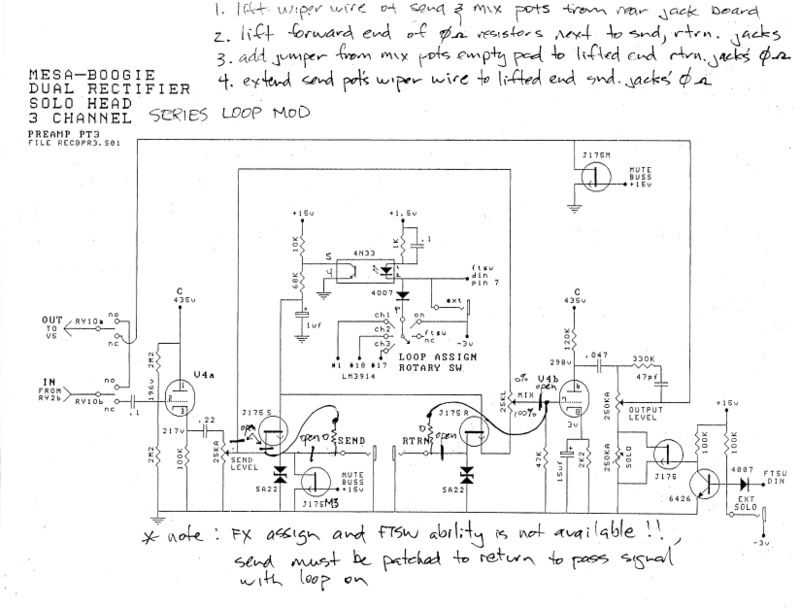 1. lift wiper wire of send & mix pots from rear jack board
2. lift forward end of ØΩ resistors next to snd, rtrn. jacks
3. add jumper from mix pots empty pad to lifted end rtrn. jack's ØΩ
4. extend send pot's wiper wire to lifted end snd. jacks' ØΩ
MESA-BOOGIE
DUAL RECTIFIER
SOLO HEAD
3 CHANNEL
SERIES LOOP MOD
PREAMP PT3
FILE RECBPR3.S01
J175M
MUTE
BUSS
+15v
+15v
+1.5v
10K
4N33
1K
.1
5
4
1
2
68K
4007
ftsw
din
pin 7
ext
1uf
ch1
ch2
ch3
on
ftsw
nc
-3v
#1 #10 #17
LM3914
LOOP ASSIGN
ROTARY SW.
C
435v
OUT
TO
V5
RY10a
no
nc
IN
FROM
RY2b
RY10b
no
nc
.1
2M2
196v
V4a
217v
.22
2M2
100K
25KA
SEND
LEVEL
open
J175 S
open
0
SEND
SA22
MUTE
BUSS
+15v
J175M3
RTRN
0
open
J175 R
SA22
25KL
0%
MIX
100%
open
V4b
C
435v
120K
298v
.047
330K
47pf
250KA
OUTPUT LEVEL
3v
47K
15uf
2K2
250KA
SOLO
J175
100K
100K
+15v
6426
4007
FTSW
DIN
EXT
SOLO
-3v
* note : FX assign and FTSW ability is not available !!,
send must be patched to return to pass signal
with loop on